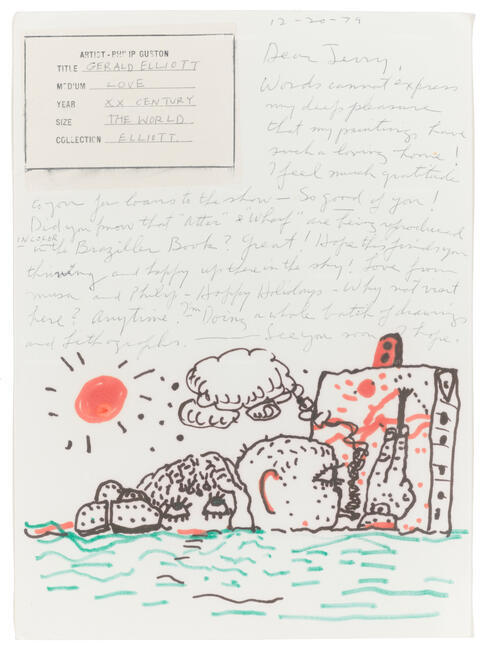 12-20-79
ARTIST - PHILIP GUSTON
TITLE GERALD ELLIOTT
MEDIUM LOVE
YEAR XX CENTURY
SIZE THE WORLD
COLLECTION ELLIOTT
Dear Jerry,
Words cannot express
my deep pleasure
that my paintings have
such a loving home!
I feel much gratitude
to you for loans to the show — So good of you!
Did you know that "Attar" & "Wharf" are being reproduced
IN COLOR
in the Braziller Book? Great! Hope this finds you
thriving and happy up there in the sky! Love from
Musa and Philip - Happy Holidays - Why not visit
here? Anytime. I'm Doing a whole batch of drawings
and Lithographs. — See you soon I hope.